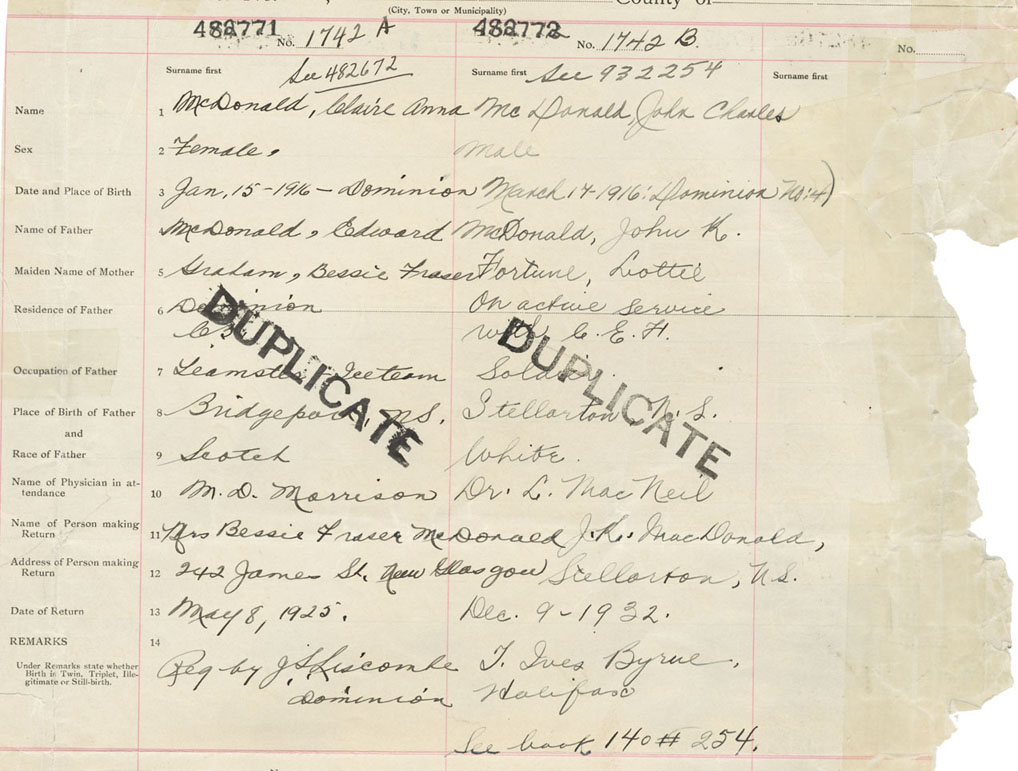 (City, Town or Municipality) County of
482771 No. 1742 A 482772 No. 1742 B No.
Surname first See 482672 Surname first See 932254 Surname first
Name 1 McDonald, Claire Anna Mc Donald, John Charles
Sex 2 Female, Male
Date and Place of Birth 3 Jan, 15-1916 - Dominion March 17-1916: Dominion No:4)
Name of Father 4 McDonald, Edward McDonald, John K.
Maiden Name of Mother 5 Graham, Bessie Fraser Fortune, Lottie
Residence of Father 6 Dominion On active Service
C.B. with C. E. F.
DUPLICATE DUPLICATE
Occupation of Father 7 Teamster Iceteam Soldier
Place of Birth of Father 8 Bridgeport, N.S. Stellarton N. S.
and
Race of Father 9 Scotch White.
Name of Physician in at-
tendance 10 M. D. Morrison Dr. L. MacNeil
Name of Person making
Return 11 Mrs Bessie Fraser McDonald J. K. MacDonald,
Address of Person making
Return 12 242 James St. New Glasgow Stellarton, N.S.
Date of Return 13 May 8, 1925. Dec. 9-1932.
REMARKS 14
Under Remarks state whether
Birth is Twin, Triplet, Ille-
gitimate or Still-birth.
Reg by J.S. Liscombe T. Ives Byrne,
Dominion Halifax
See book 140 # 254.